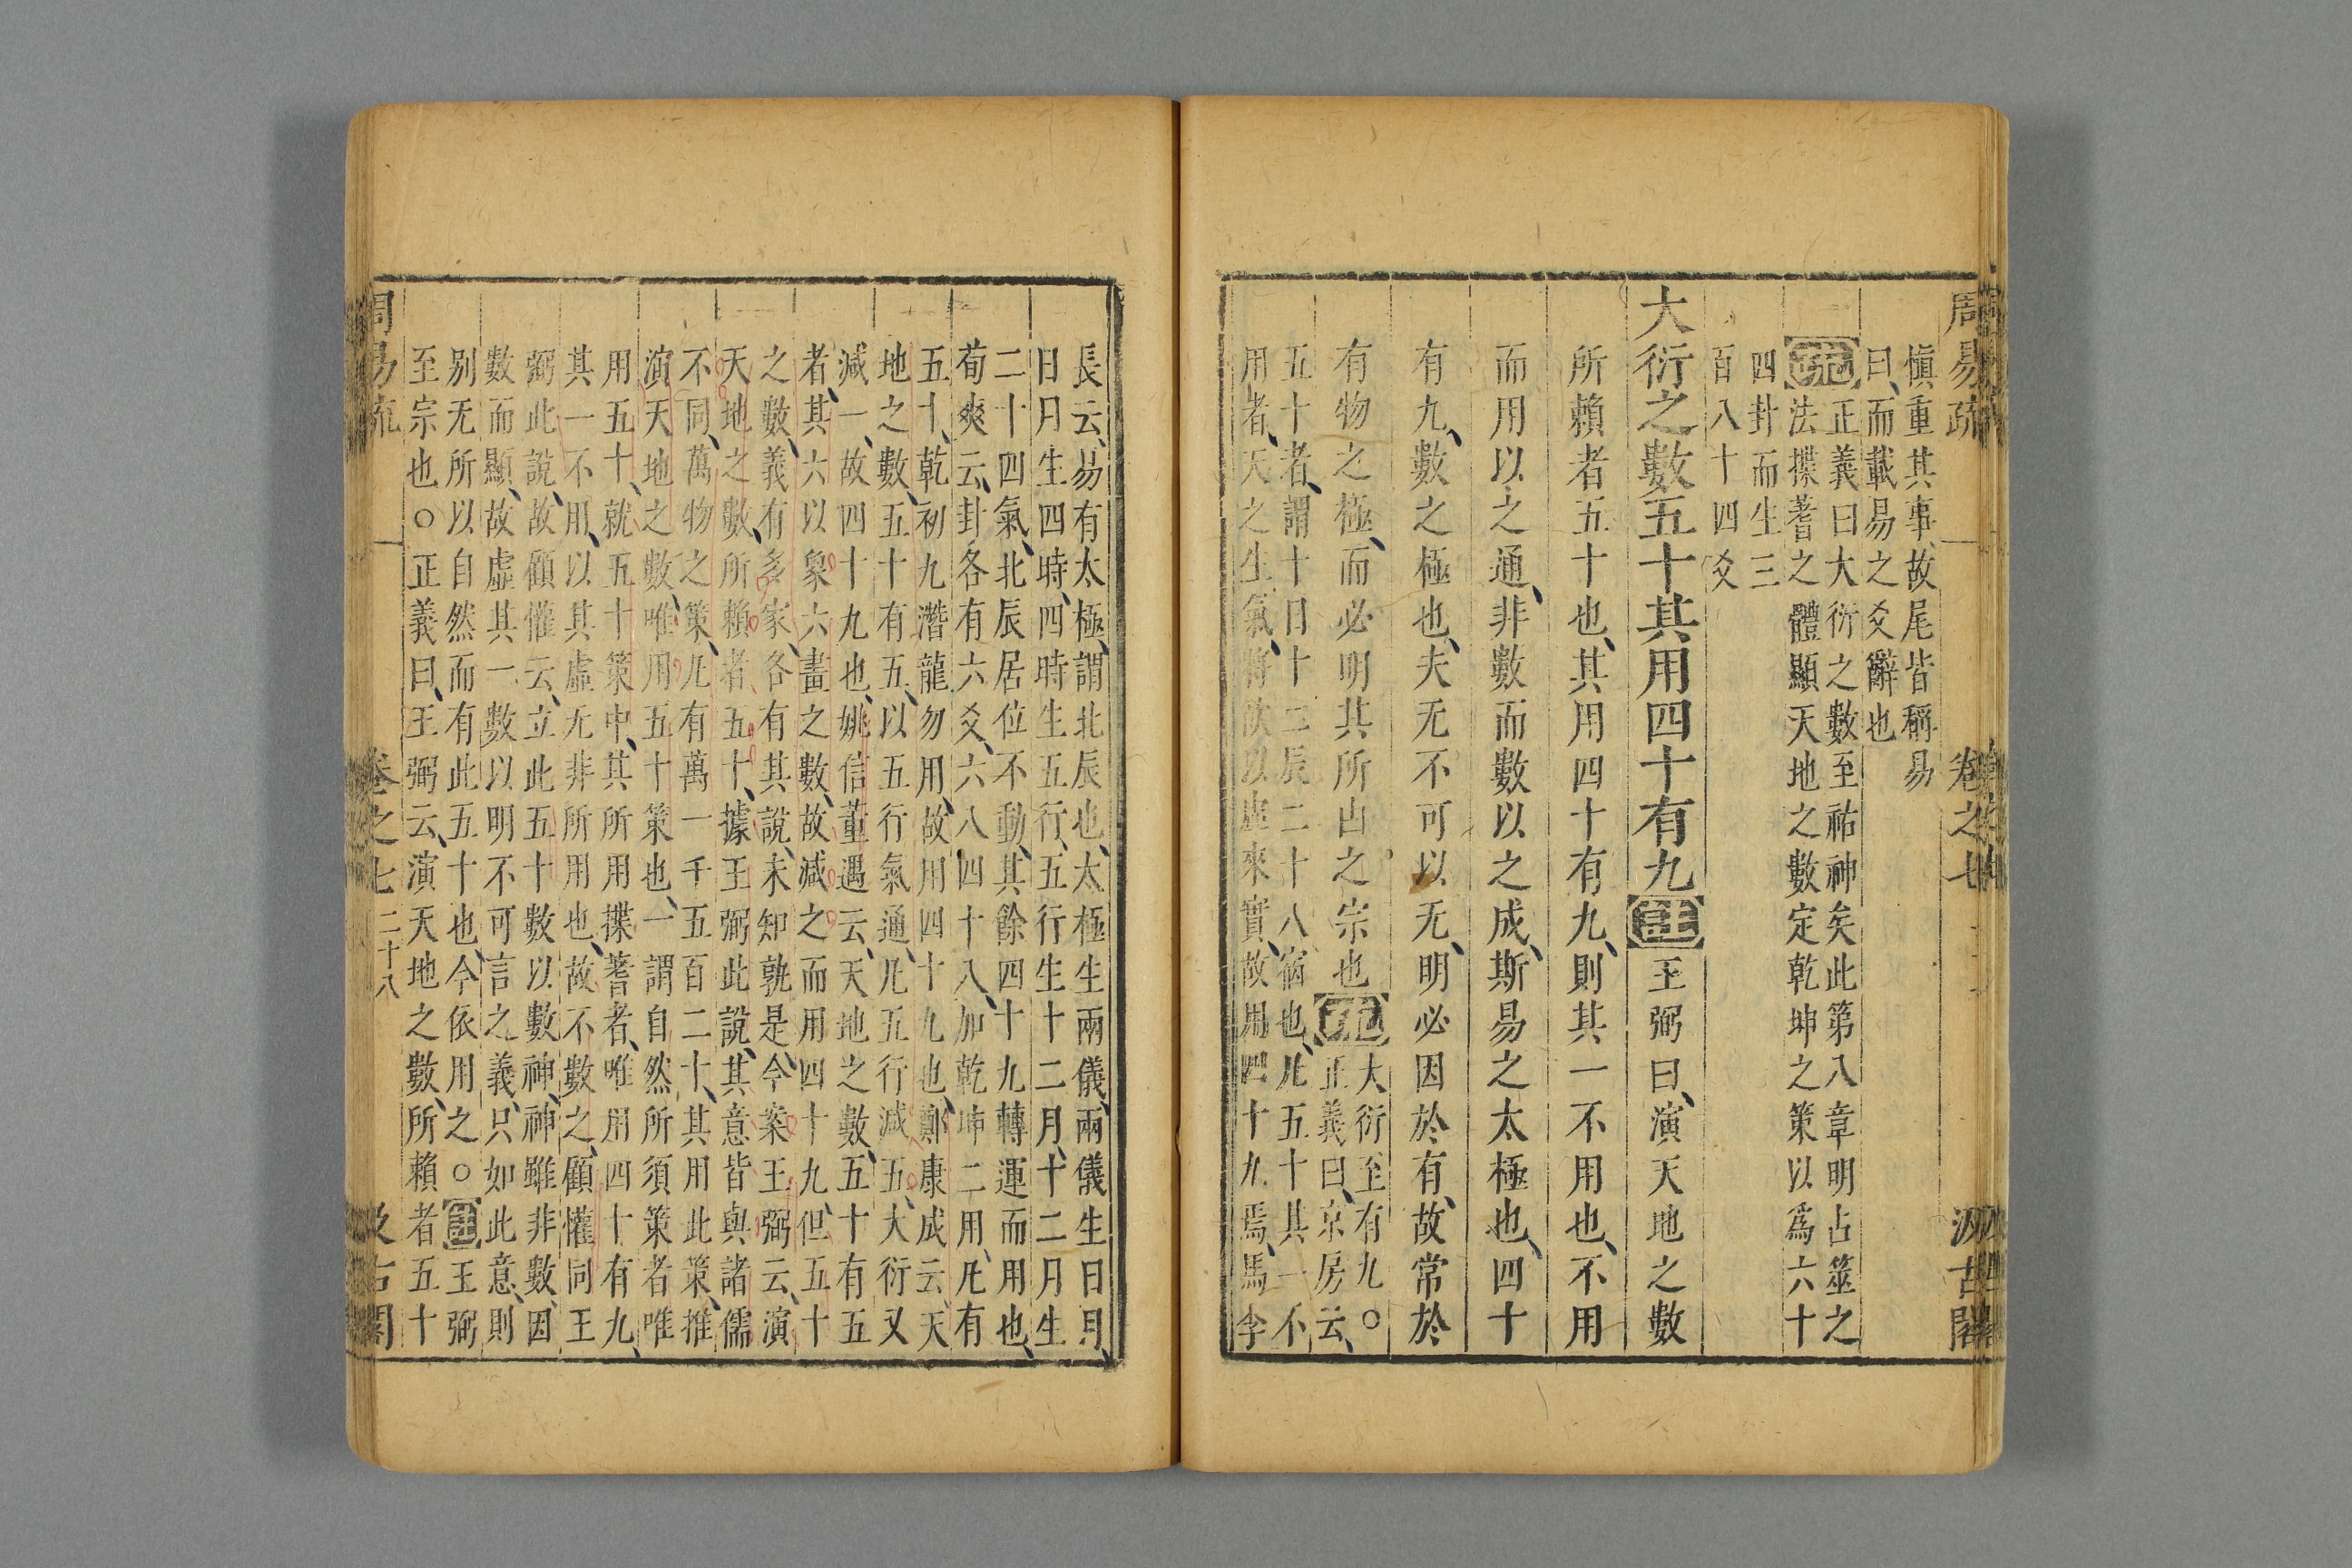 周易疏 卷之七 汲古閣
愼重其事、故尾皆稱易
曰、而載易之爻辭也
疏 正義曰大衍之數至祐神矣此第八章明占筮之
法揲蓍之體顯天地之數定乾坤之策以爲六十
四卦而生三
百八十四爻
大衍之數五十其用四十有九 註 王弼曰、演天地之數
所賴者五十也、其用四十有九、則其一不用也、不用
而用以之通、非數而數以之成、斯易之太極也、四十
有九、數之極也、夫无不可以无、明必因於有、故常於
有物之極、而必明其所由之宗也 疏 大衍至有九○
正義曰、京房云、
五十者、謂十日十二辰二十八宿也、凡五十其一不
用者、天之生氣、將欲以虛來實、故用四十九焉、馬李
長云、易有太極、謂北辰也、太極生兩儀、兩儀生日月、
日月生四時、四時生五行、五行生十二月、十二月生
二十四氣、北辰居位不動、其餘四十九轉運而用也、
荀爽云、卦各有六爻、六八四十八、加乾坤二用、凡有
五十、乾初九潛龍勿用、故用四十九也、鄭康成云、天
地之數、五十有五、以五行氣通、凡五行減五、大衍又
減一、故四十九也、姚信董遇云、天地之數、五十有五
者、其六以象六畫之數、故減之而用四十九、但五十
之數、義有多家、各有其說、未知孰是、今案王弼云、演
天地之數、所賴者五十、據王弼此說、其意皆與諸儒
不同、萬物之策、凡有萬一千五百二十、其用此策、推
演天地之數、唯用五十策也、一謂自然所須策者唯
用五十、就五十策中、其所用揲蓍者、唯用四十有九、
其一不用、以其虛无非所用也、故不數之、顧懽同王
弼此說、故顧懽云、立此五十數以數神、神雖非數、因
數而顯、故虛其一數以明不可言之義、只如此意、則
别无所以自然而有此五十也、今依用之○ 註 王弼
至宗也○正義曰、王弼云、演天地之數、所賴者五十
周易疏 卷之七 二十八 汲古閣